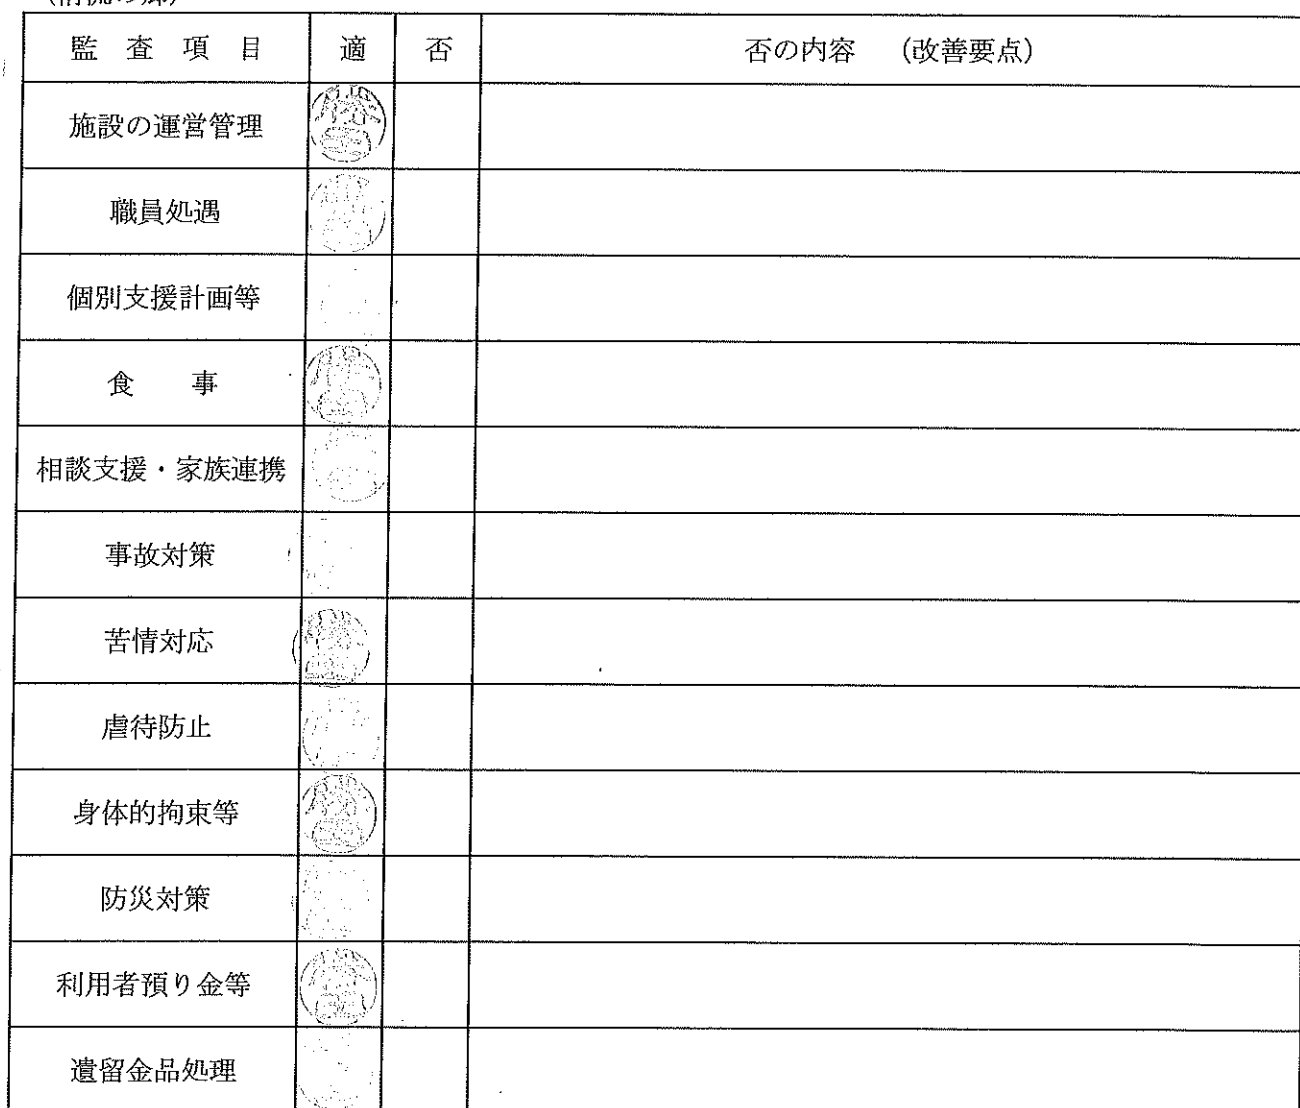 監査項目 適 否 否の内容 （改善要点）
施設の運営管理
職員処遇
個別支援計画等
食事
相談支援・家族連携
事故対策
苦情対応
虐待防止
身体的拘束等
防災対策
利用者預り金等
遺留金品処理